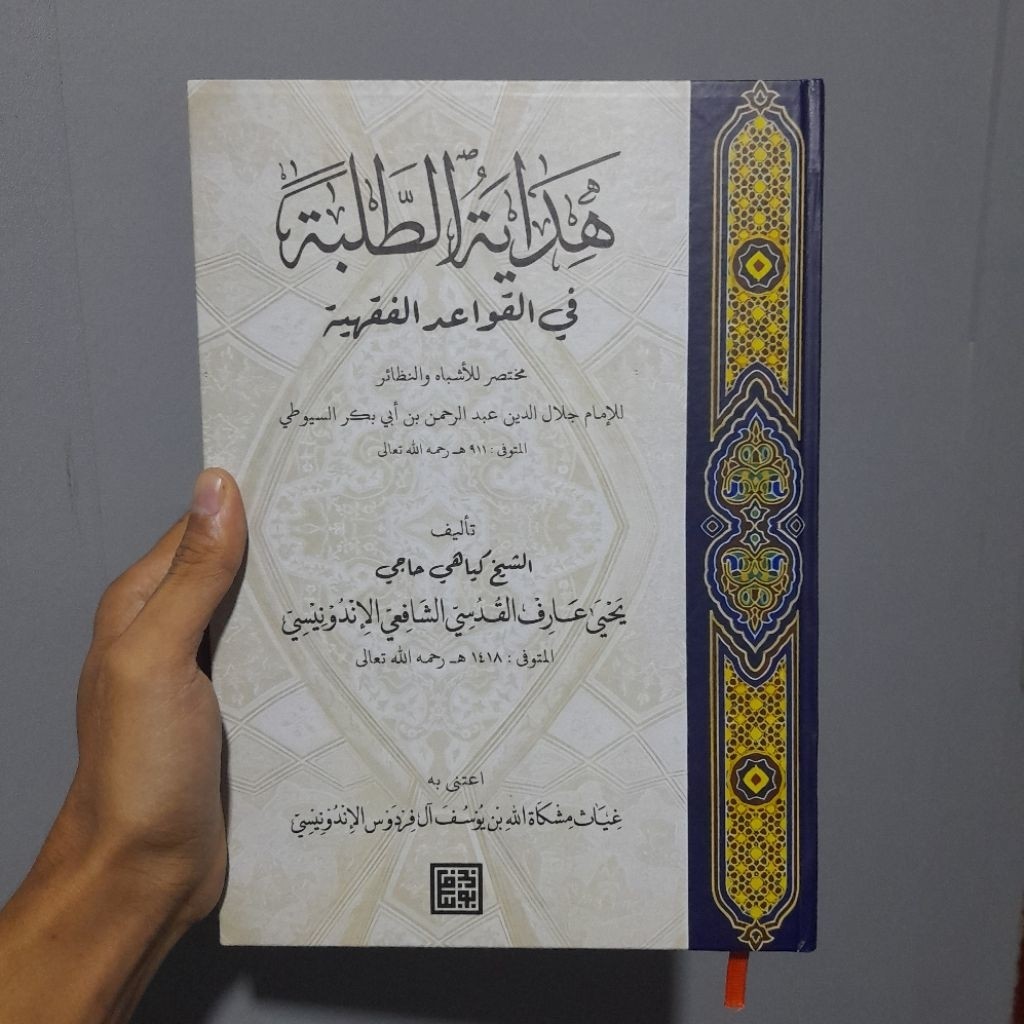 هِدَايَةُ الطَّلَبَةِ
في القواعد الفقهية
مختصر للأشباه والنظائر
للإمام جلال الدين عبد الرحمن بن أبي بكر السيوطي
المتوفى : ٩١١ هـ رحمه الله تعالى
تأليف
الشيخ كياهي حاجي
يَحْيَى عَارِفْ القُدْسِيّ الشَّافِعِيّ الإِنْدُوْنِيْسِيّ
المتوفى : ١٤١٨ هـ رحمه الله تعالى
اعتنى به
غِيَاث مِشْكَاة الله بْن يُوْسُفَ آل فِرْدَوْس الإِنْدُوْنِيْسِيّ